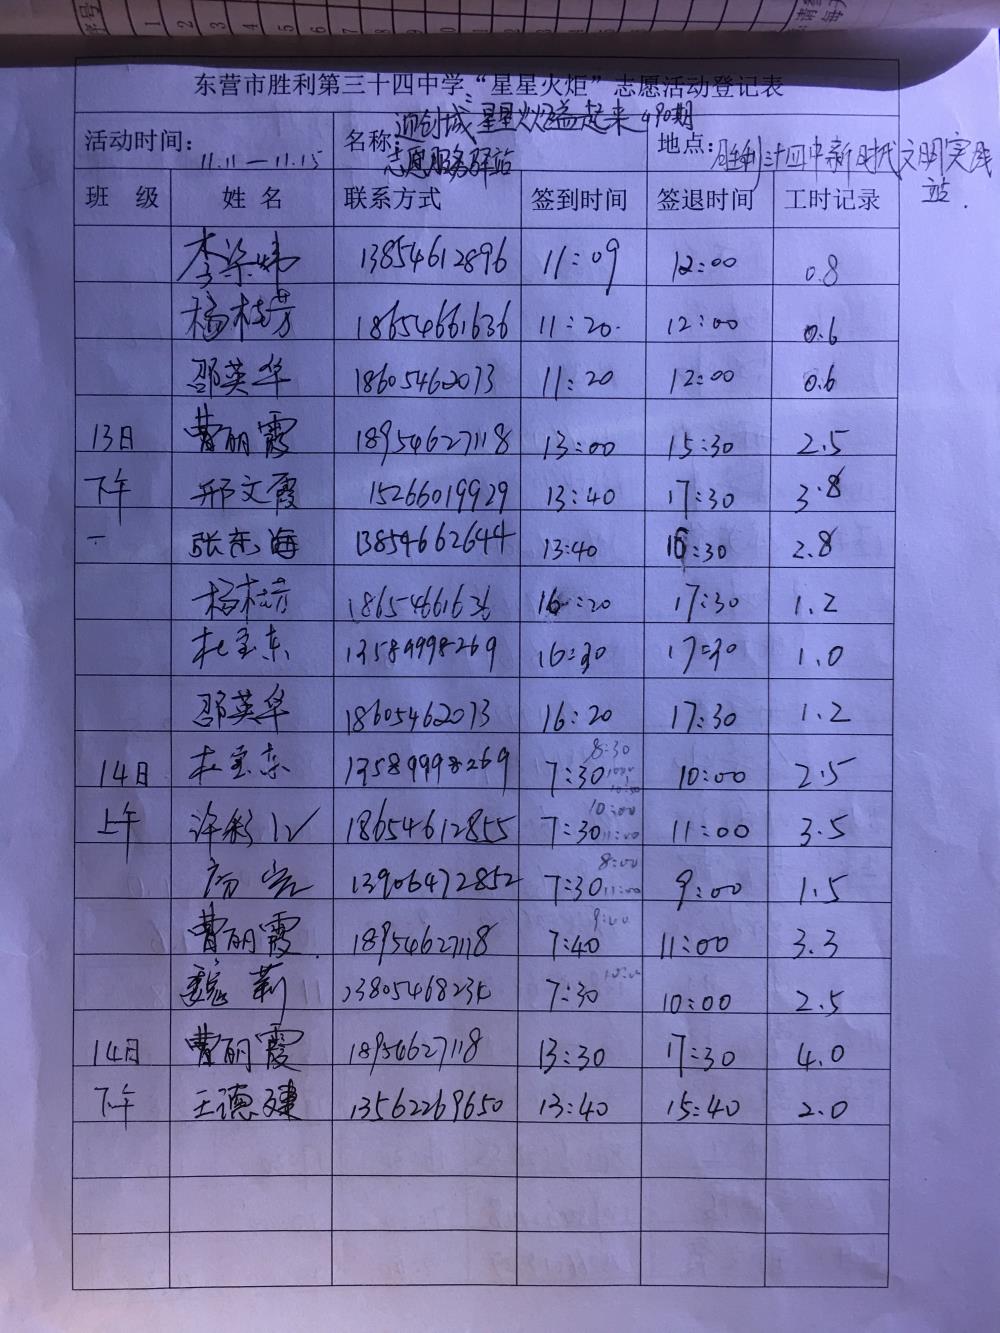 序号 1 2 3 4 5 6 7 8 9
东营市胜利第三十四中学“星星火炬”志愿活动登记表
活动时间：11.11—11.15 名称：迎创城星星火炬益起来490期志愿服务驿站 地点：胜利三十四中新时代文明实践站.
班 级 姓 名 联系方式 签到时间 签退时间 工时记录
李梁炜 13854612896 11:09 12:00 0.8
杨桂芳 18654661636 11:20 12:00 0.6
邵英华 18605462073 11:20 12:00 0.6
13日 曹丽霞 18954627118 13:00 15:30 2.5
下午 邢文霞 15266019929 13:40 17:30 3.8
一 张东海 13854662644 13:40 16:30 2.8
杨桂芳 18654661636 16:20 17:30 1.2
杜宝东 13589998269 16:30 17:30 1.0
邵英华 18605462073 16:20 17:30 1.2
14日 杜宝东 13589998269 7:30 8:30 10:00 2.5
上午 许彩 18654612855 7:30 10:00 11:00 11:00 3.5
13906472852 7:30 8:00 11:00 9:00 1.5
曹丽霞 18954627118 7:40 9:00 11:00 3.3
魏莉 7:30 10:00 2.5
14日 曹丽霞 18954627118 13:30 17:30 4.0
下午 王德建 13562269650 13:40 15:40 2.0